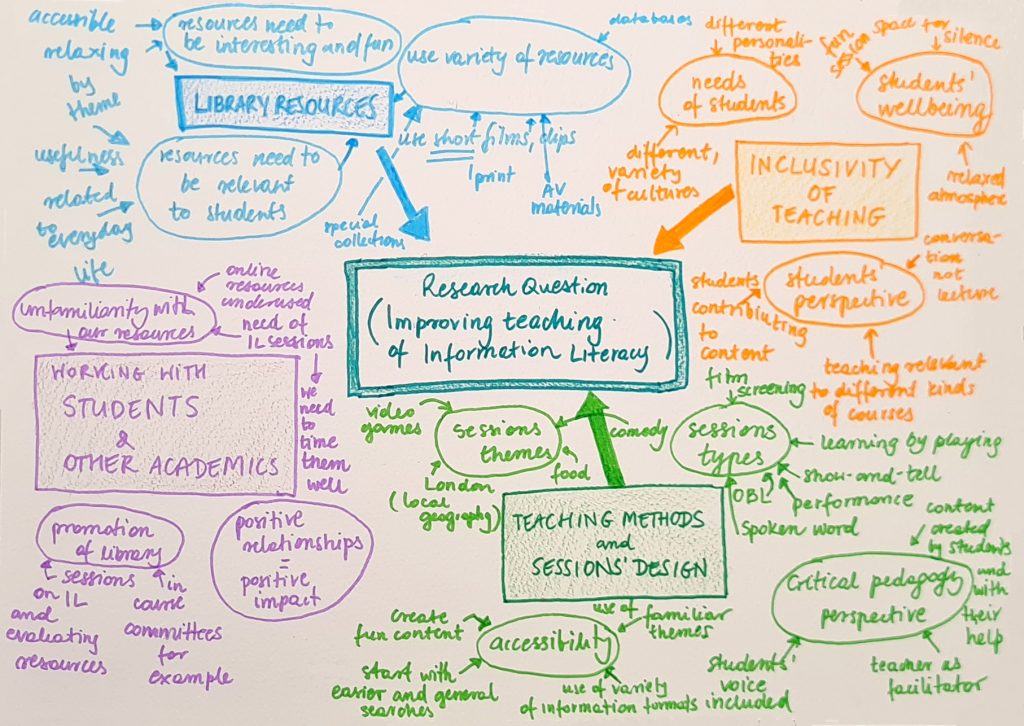 accessible
relaxing
by
theme
usefulness
related
to everyday
life
resources need to
be interesting and fun
LIBRARY RESOURCES
resources need to
be relevant
to students
use variety of resources
databases
use short films, clips
print
AV
materials
special
collections
different
personali-
ties
needs
of students
different,
variety
of cultures
fun
session
space for
silence
students'
wellbeing
relaxed
atmosphere
INCLUSIVITY
OF
TEACHING
students'
perspective
conversa-
tion
not
lecture
students
contributing
to
content
teaching relevant
to different kinds
of courses
Research Question
(Improving teaching
of Information Literacy)
unfamiliarity with
our resources
online
resources
underused
need of
IL sessions
we
need
to
time
them
well
WORKING WITH
STUDENTS
&
OTHER ACADEMICS
promotion
of library
sessions
on IL
and
evaluating
resources
in
course
committees
for
example
positive
relationships
=
positive
impact
video
games
sessions
themes
comedy
food
London
(local
geography)
film
screening
sessions
types
learning by playing
show-and-tell
performance
OBL
spoken word
TEACHING METHODS
and
SESSIONS' DESIGN
create
fun content
accessibility
use of
familiar
themes
start with
easier and general
searches
use of variety
of information formats
critical pedagogy
perspective
content
created
by students
and
with
their
help
students'
voice
included
teacher as
facilitator